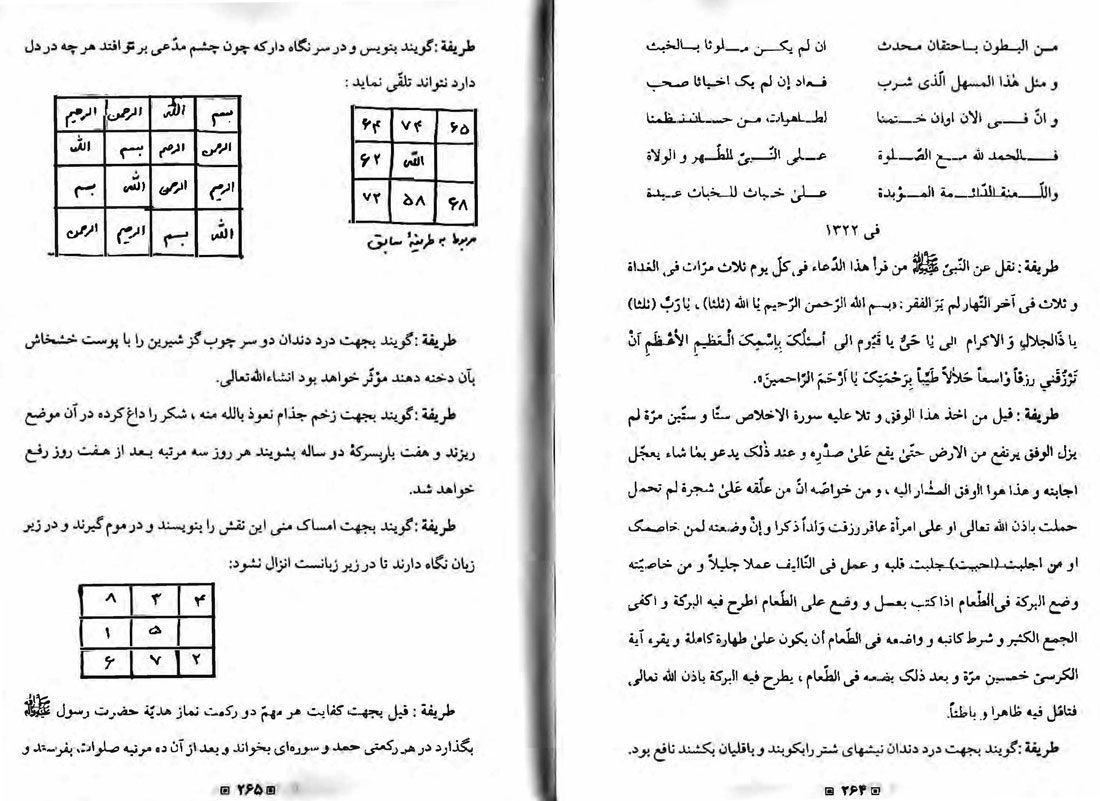 من البطون باحتقان محدث ان لم یکن ملوثا بالخبث
و مثل هٰذا المسهل الّذی شرب فعاد إن لم یک اخباثا صحب
و انّ فی الان اوان ختمنا لطاهرات من حسان نظمنا
فالحمد لله مع الصّلوة علی النّبیّ المطّهر و الولاة
واللعنة الدّائمة المؤبدة علیٰ خباث للخباث عیدة
فی ۱۳۲۲
طریفة: نقل عن النّبیّ ﷺ من قرأ هذا الدّعاء فی کلّ یوم ثلاث مرّات فی الغداة
و ثلاث فی آخر النّهار لم یَرَ الفقر: «بسم الله الرّحمن الرّحیم یٰا الله (ثلثا)، یٰا رَبُّ (ثلثا)
یا ذَالجلالِ وَ الاکرام الی یٰا حَیُّ یٰا قَیُّوم الی أسئلُکَ بِاِسْمِکَ الْعَظیمِ الأعْظَمِ اَنْ
تَرْزُقَنی رزقاً وٰاسعاً حَلاٰلاً طَیِّباً بِرَحْمَتِکَ یٰا اَرْحَمَ الرّاحمینَ».
طریفة: قیل من اخذ هذا الوفق و تلا علیه سورة الاخلاص ستّا و ستّین مرّة لم
یزل الوفق یرتفع من الارض حتّیٰ یقع عَلیٰ صدْرِه و عند ذٰلک یدعو بمٰا شاء یعجّل
اجابته و هذا هوا الوفق المشٰار الیه، و من خواصّه انّ من علّقه عَلیٰ شجرة لم تحمل
حملت باذن الله تعالی او علی امرأة عاقر رزقت وَلداً ذکرا و إنْ وضعته لمن خاصمک
او من اجلبت (احببت) جلبت قلبه و عمل فی التّالیف عملا جلیلاً و من خاصیّته
وضع البرکة فی الطّعام اذا کتب بعسل و وضع علی الطّعام اطرح فیه البرکة و اکفی
الجمع الکثیر و شرط کاتبه و واضعه فی الطّعام أن یکون علیٰ طهارة کاملة و یقرء آیة
الکرسیّ خمسین مرّة و بعد ذلک یضعه فی الطّعام، یطرح فیه البرکة باذن الله تعالی
فتامّل فیه ظاهرا و باطناً.
طریفة: گویند بجهت درد دندان نیشهای شتر رابکوبند و باقلیان بکشند نافع بود.
۲۶۴
طریفة: گویند بنویس و در سر نگاه دار که چون چشم مدّعی بر تو افتد هر چه در دل
دارد نتواند تلقّی نماید:
۶۵ ۷۴ ۶۴
الله ۶۲
۶۸ ۵۸ ۷۲
مربوط به طریفهٔ سابق
بسم الله الرحمن الرحیم
الرحمن الرحیم بسم الله
الرحیم الرحمن الله بسم
الله بسم الرحیم الرحمن
طریفة: گویند بجهت درد دندان دو سر چوب گز شیرین را با پوست خشخاش
بآن دخنه دهند مؤثّر خواهد بود انشاءالله‌تعالی.
طریفة: گویند بجهت زخم جذام نعوذ بالله منه، شکر را داغ کرده در آن موضع
ریزند و هفت بار بسرکهٔ دو ساله بشویند هر روز سه مرتبه بعد از هفت روز رفع
خواهد شد.
طریفة: گویند بجهت امساک منی این نقش را بنویسند و در موم گیرند و در زیر
زبان نگاه دارند تا در زیر زبانست انزال نشود:
۴ ۳ ۸
۵ ۱
۲ ۷ ۶
طریفة: قیل بجهت کفایت هر مهمّ دو رکعت نماز هدیّة حضرت رسول ﷺ
بگذارد در هر رکعتی حمد و سوره‌ای بخواند و بعد از آن ده مرتبه صلوات بفرستد و
۲۶۵